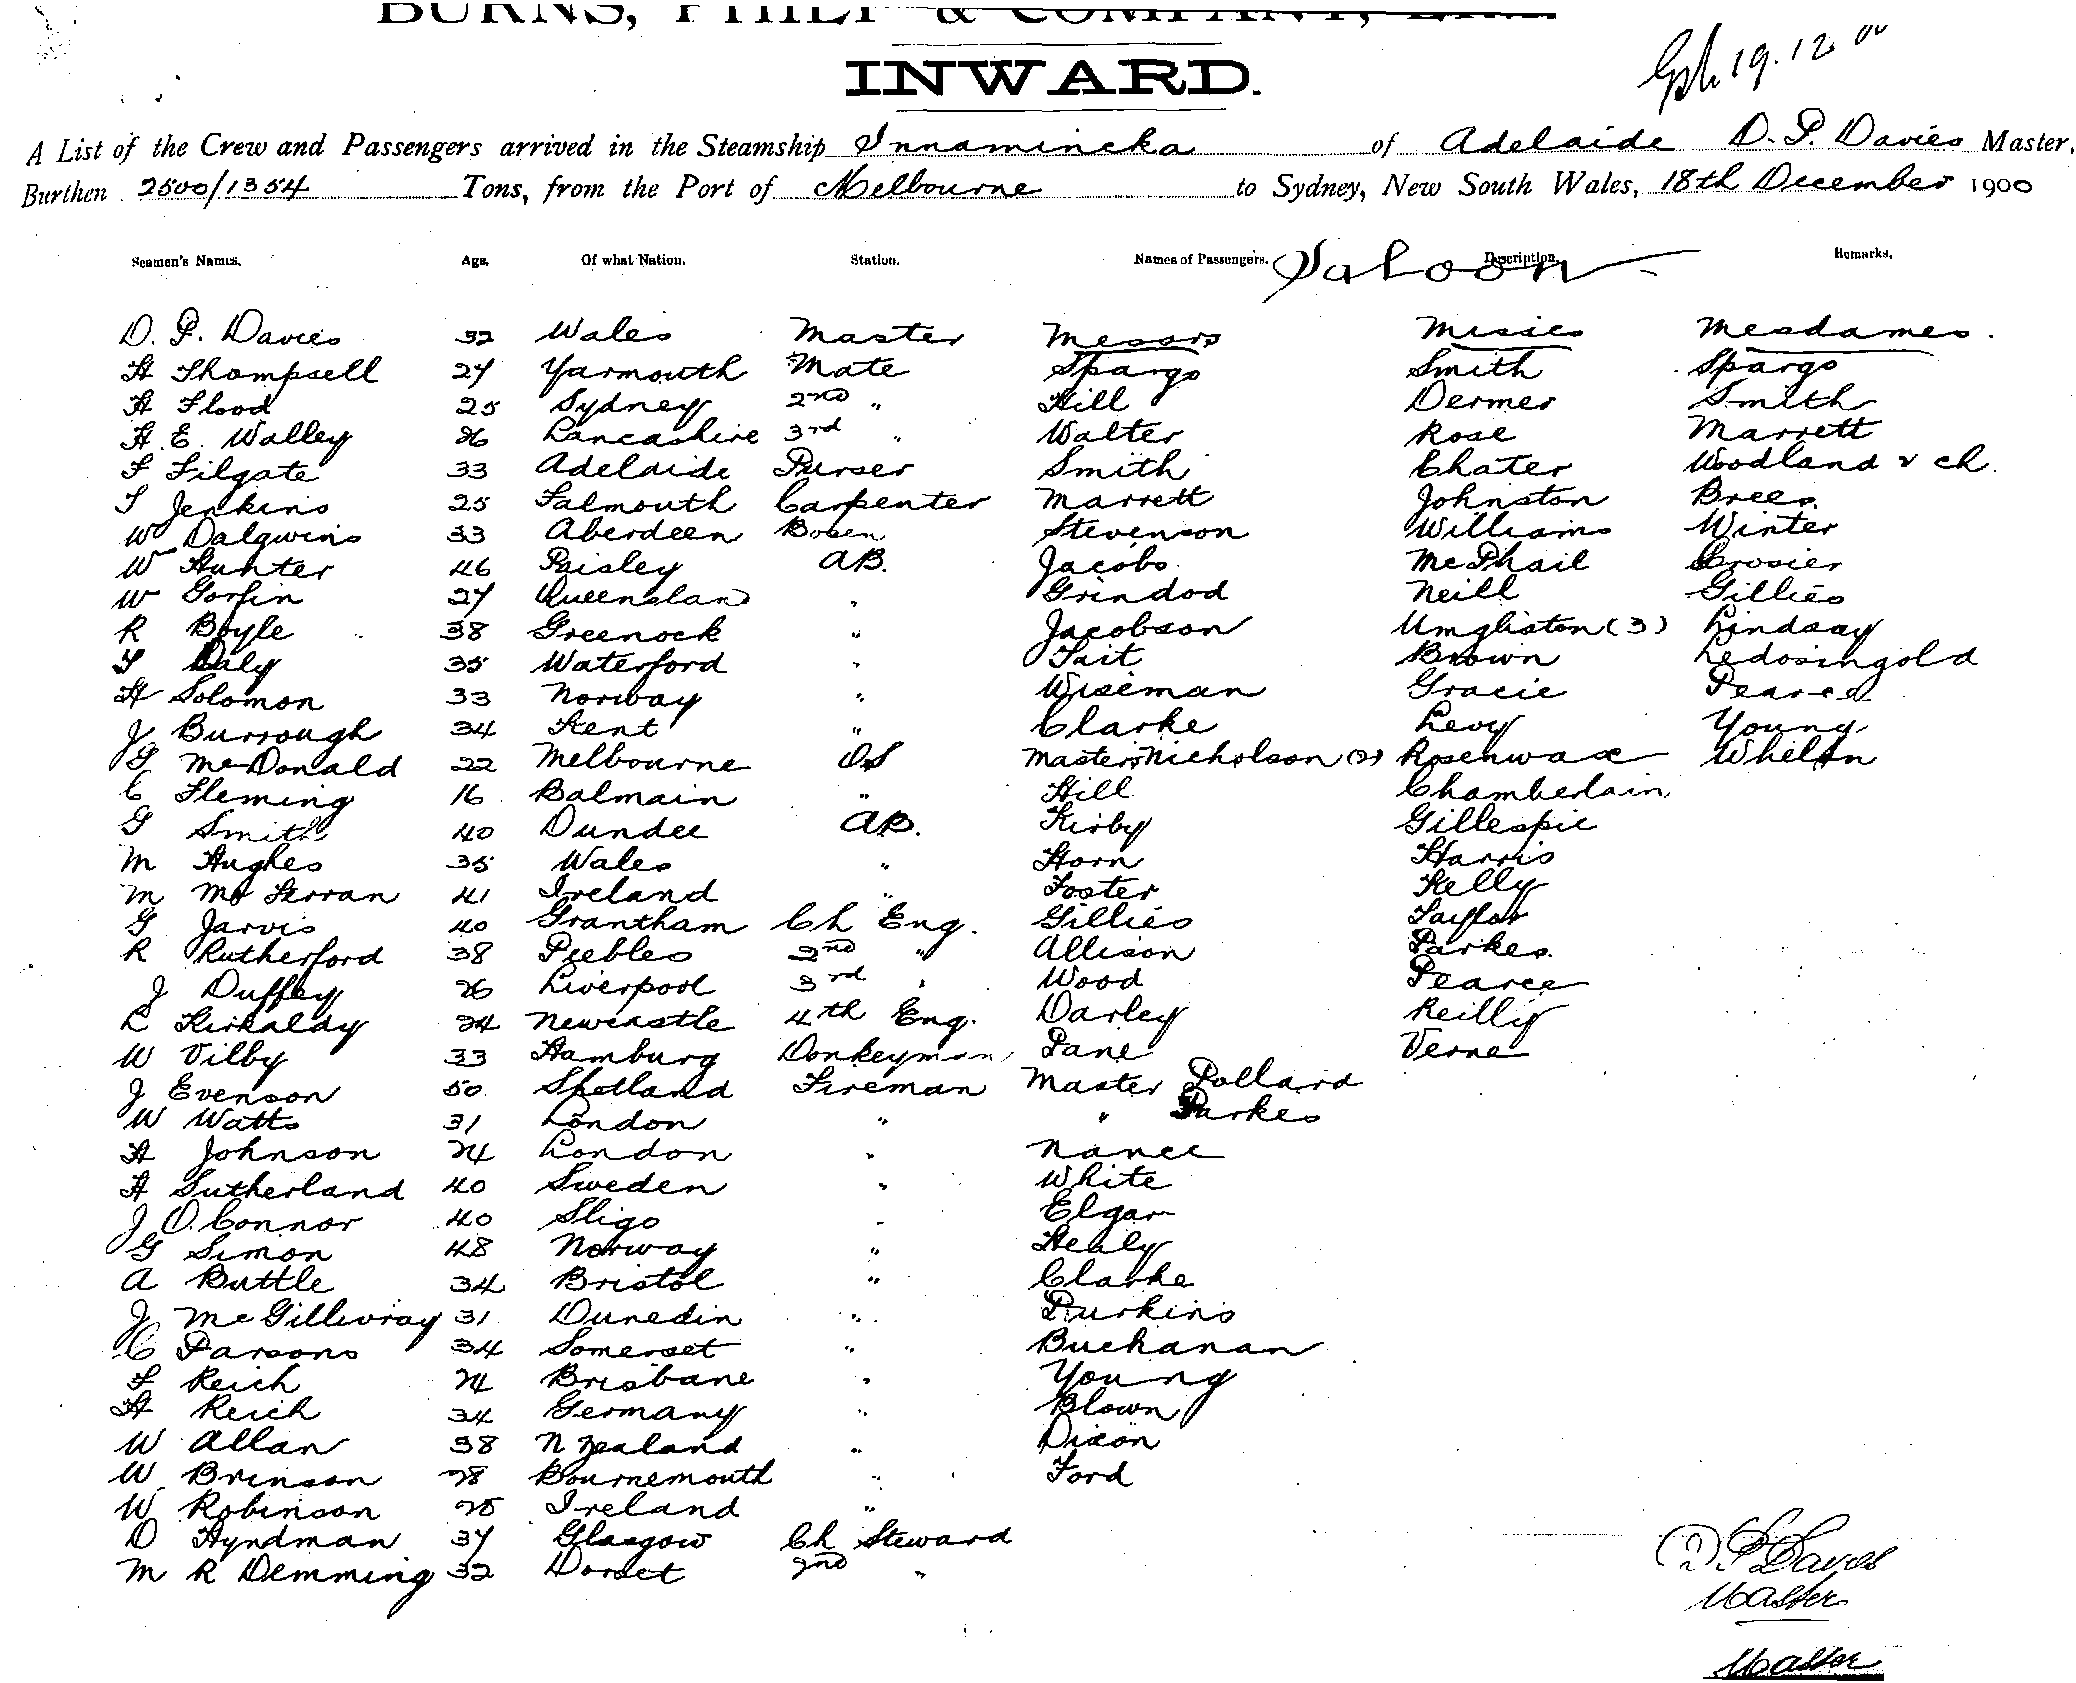 BURNS, PHILP & COMPANY,
INWARD.
19.12.00
A List of the Crew and Passengers arrived in the Steamship Innamincka of Adelaide D. P. Davies Master,
Burthen 2500/1354 Tons, from the Port of Melbourne to Sydney, New South Wales, 18th December 1900
Seamen's Names. Age. Of what Nation. Station. Names of Passengers. Description. Remarks.
Saloon
D. P. Davies 32 Wales Master Messrs Misses Mesdames.
H Thompsell 27 Yarmouth Mate Spargo Smith Spargo
H Flood 25 Sydney 2nd " Hill Dermer Smith
H. E. Walley 26 Lancashire 3rd " Walter Rose Marrett
F Filgate 33 Adelaide Purser Smith Chater Woodland & ch.
T Jenkins 25 Falmouth Carpenter Marrett Johnston Brees
W Dalgwins 33 Aberdeen Bosen Stevenson Williams Winter
W Hunter 46 Paisley AB. Jacobs McPhail Crosier
W Gorfin 27 Queensland " Grindod Neill Gillies
R Boyle 38 Greenock " Jacobson Umgliston (3) Lindsay
T Daly 35 Waterford " Tait Brown Ledosingold
H Solomon 33 Norway " Wiseman Gracie Pearce
J Burrough 34 Kent " Clarke Levy Young
G McDonald 22 Melbourne OS Masters Nicholson (2) Rosenwax Whelan
C Fleming 16 Balmain " Hill Chamberlain
G Smith 40 Dundee AB. Kirby Gillespie
M Hughes 35 Wales " Horn Harris
M Mc Ferran 41 Ireland " Foster Kelly
G Jarvis 40 Grantham Ch Eng. Gillies Taylor
R Rutherford 38 Peebles 2nd " Allison Parkes
J Duffey 26 Liverpool 3rd " Wood Pearce
L Kirkaldy 24 Newcastle 4th Eng. Darley Reilly
W Vilby 33 Hamburg Donkeyman Pane Verne
J Evenson 50 Shetland Fireman Master Pollard
W Watts 31 London " " Parkes
H Johnson 24 London " Nance
H Sutherland 40 Sweden " White
J O'Connor 40 Sligo " Elgar
G Simon 48 Norway " Healy
A Buttle 34 Bristol " Clarke
J McGillivray 31 Dunedin " Durkins
C Parsons 34 Somerset " Buchanan
F Reich 24 Brisbane " Young
H Reich 34 Germany " Blown
W Allan 38 N Zealand " Dixon
W Brinson 28 Bournemouth " Ford
W Robinson 25 Ireland "
D Hyndman 37 Glasgow Ch Steward
M R Demming 32 Dorset 2nd "
D. P. Davies
Master
Master